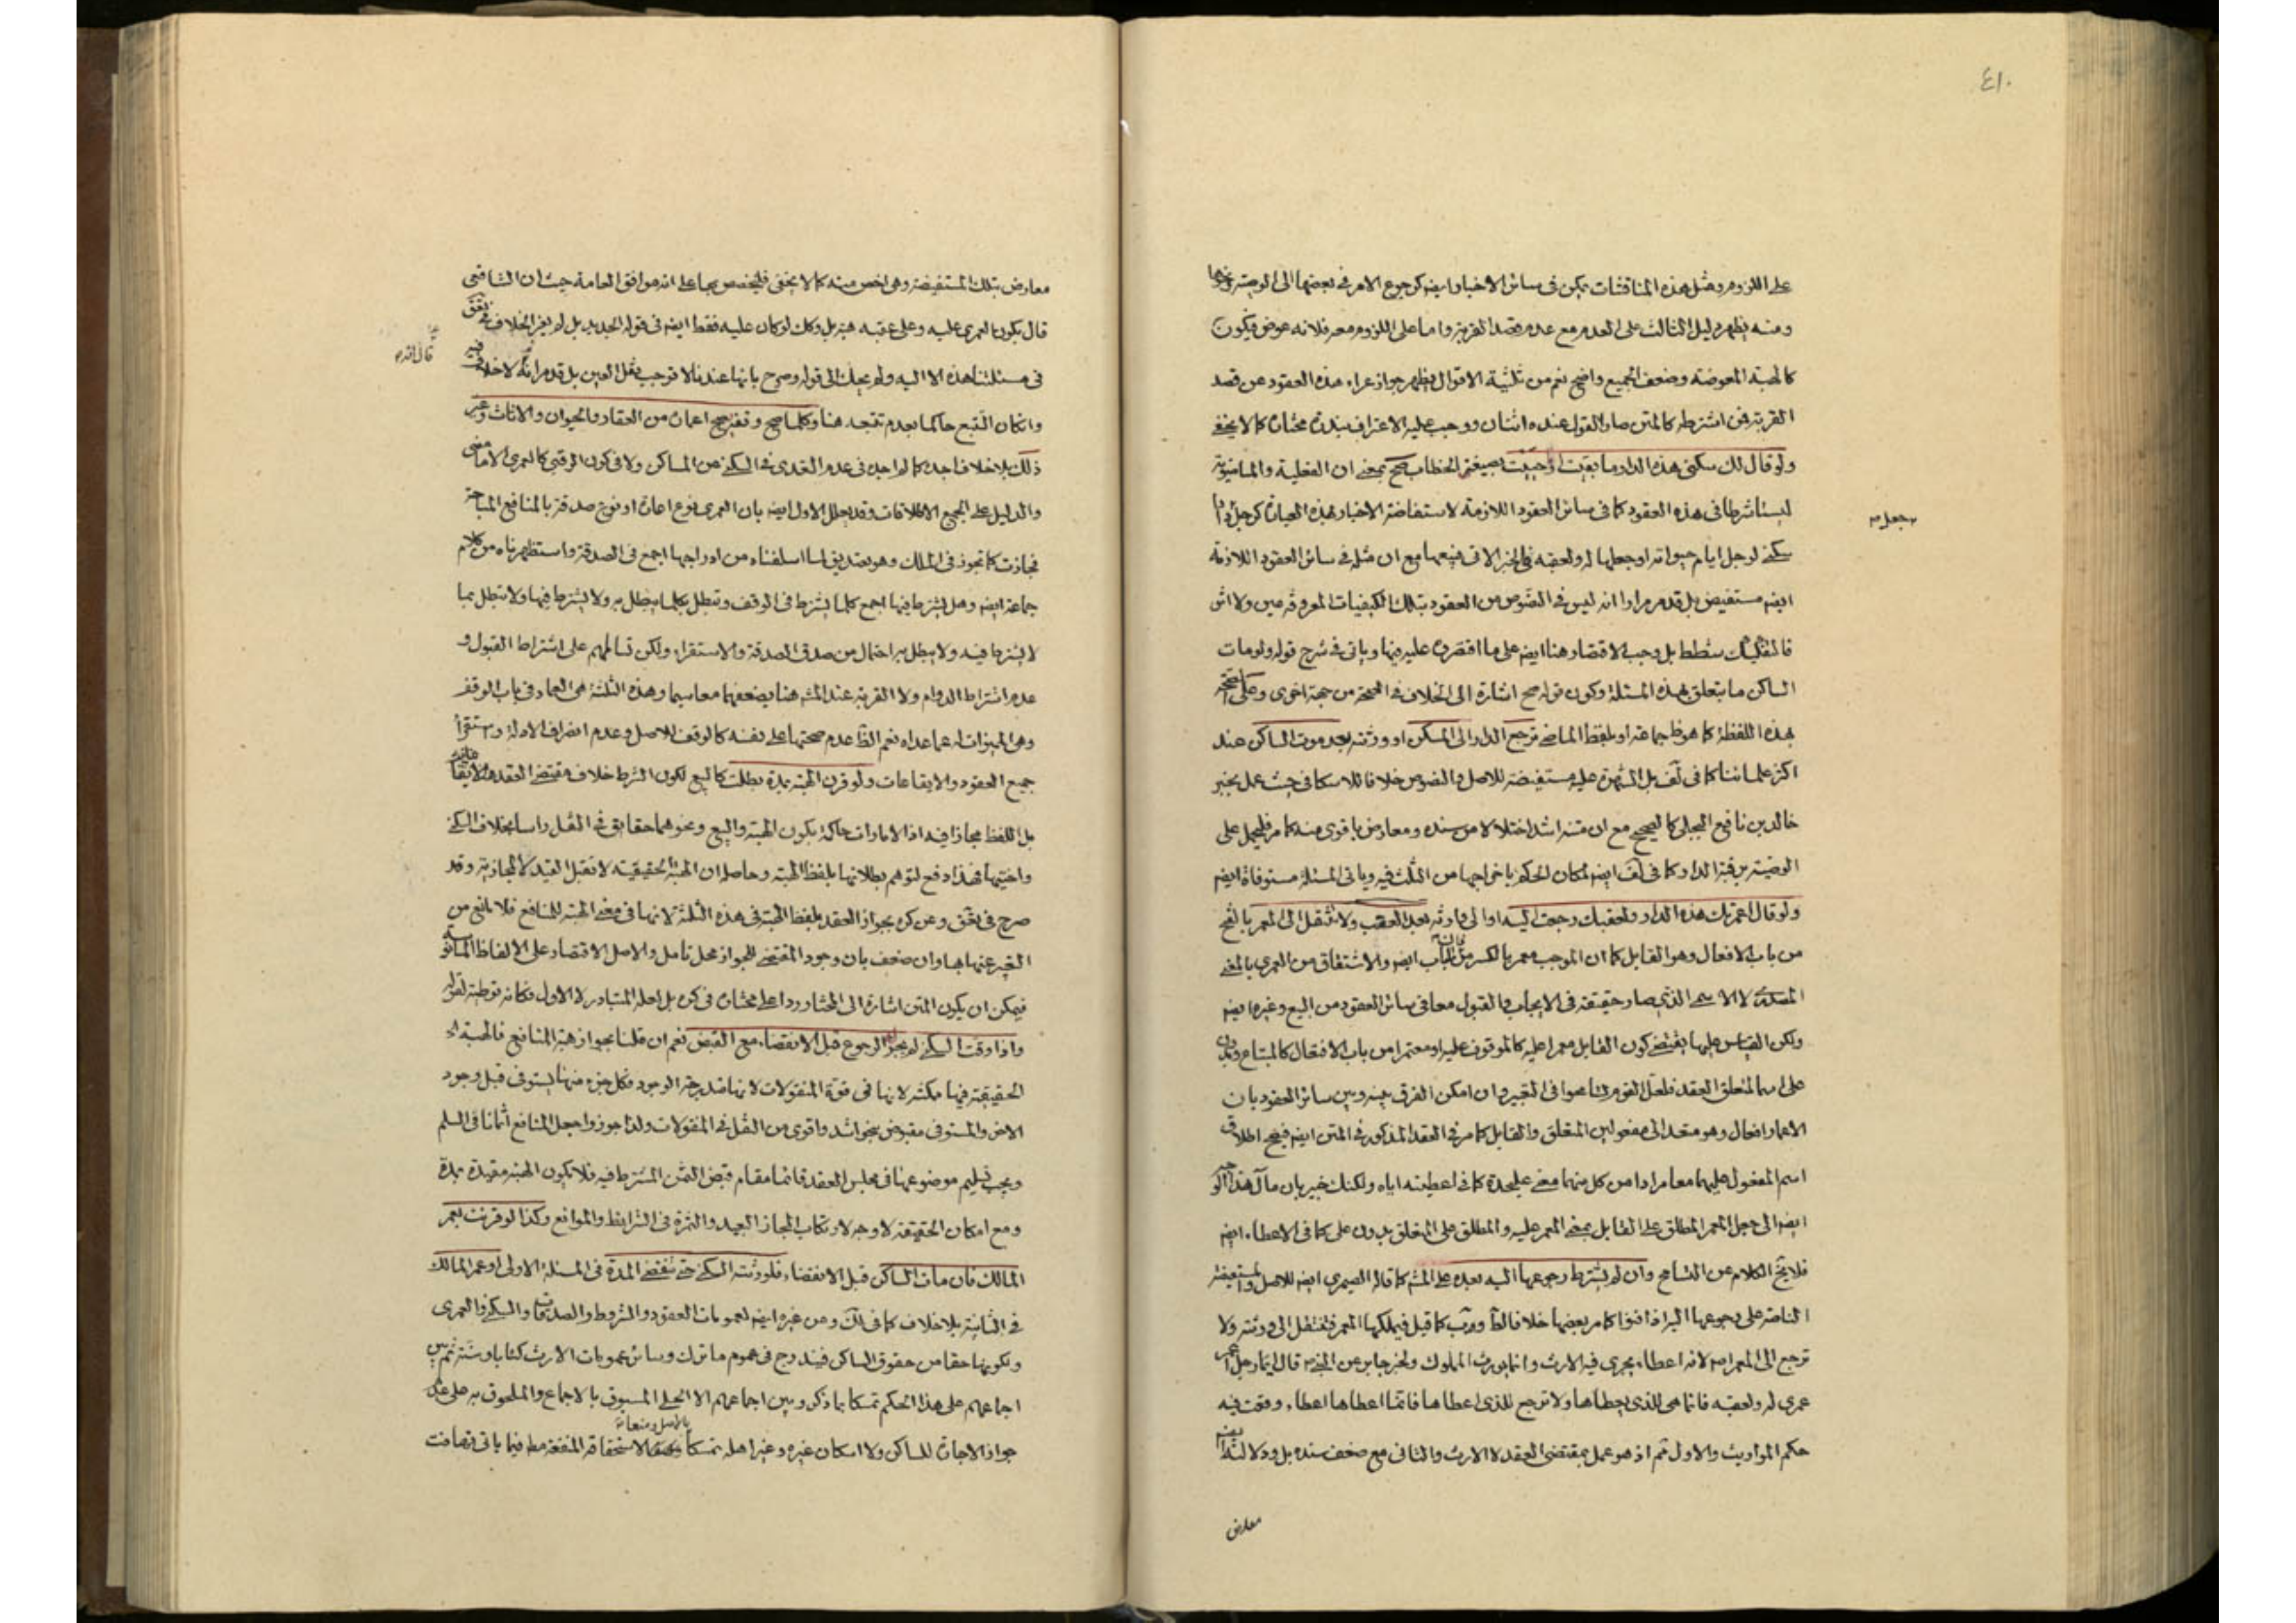 ٤١٠
على اللزوم ومثل هذه المناقشات يمكن في سائر الاخبار ايضا كرجوع الامر في بعضها الى الوصية ونحوها
ومنه يظهر دليل الثالث على العدم مع عدم قصد القربة واما على اللزوم معه فلانه عوض فيكون
كالهبة المعوضة وضعف الجميع واضح نعم من ثلثية الاقوال يظهر جواز عراء هذه العقود عن قصد
القربة فمن اشترطه كالمتن صار القول عنده اثنان ووجب عليه الاعتراف بندرة مختاره كما لا يخفى
ولو قال لك سكنى هذه الدار ما بقيت او حييت بصيغتي الخطاب صح بمعنى ان الفعلية والماضوية
ليستا شرطا في هذه العقود كما في سائر العقود اللازمة لاستفاضة الاخبار بهذه العبارة كرجل
جعل
سكنى لرجل ايام حيواته او جعلها له ولعقبه في الخبر الاتي فيتبعها مع ان مثله في سائر العقود اللازمة
ايضا مستفيض بل قد مر مرارا انه ليس في النصوص من العقود بتلك الكيفيات المعروفة عين ولا اثر
فالتفكيك شطط بل وجب الاقتصار هنا ايضا على ما اقتصروا عليه فيها وياتي في شرح قوله ولو مات
الساكن ما يتعلق بهذه المسئلة وكون قوله صح اشارة الى الخلاف في الصحة من جهة اخرى وعلى الصحة
بهذه اللفظة كما هو ظ جماعة او بلفظ الماضي ترجع الدار الى المسكن او ورثته بعد موت الساكن عند
اكثر علمائنا كما في لف بل الشهرة عليه مستفيضة للاصل والنصوص خلافا للاسكافي حيث عمل بخبر
خالد بن نافع البجلي كالصحيح مع ان متنه اشد اختلالا من سنده ومعارض باقوى منه كما مر فليحمل على
الوصية برقبة الدار كما في لف ايضا لمكان الحكم باخراجها من الثلث فيه وياتي المسئلة مستوفاة ايضا
ولو قال اعمرتك هذه الدار ولعقبك رجعت اليه او الى وارثه بعد العقب ولا تنتقل الى المعمر بالفتح
من باب الافعال وهو القابل كما ان الموجب معمر بالكسر من الباب ايضا والاشتقاق من العمرى بالمعنى
المصدري لا الاسمي الذي صار حقيقة في الايجاب والقبول معا في سائر العقود من البيع وغيره ايضا
ولكن القياس عليها يقتضي كون القابل معمرا عليه كالموقوف عليه او معتمرا من باب الافتعال كالمبتاع وبدون
على اسما لمتعلق العقد فلعل القوم تسامحوا في التعبير وان امكن الفرق بينه وبين سائر العقود بان
الاعمار افعال وهو متعد الى مفعولين المتعلق والقابل كما مر في العقد المذكور في المتن ايضا فيصح اطلاق
اسم المفعول عليهما معا مرادا من كل منهما معنى عليحدة كما في اعطيته اياه ولكنك خبير بان مآل هذا الوجه
ايضا الى جعل المعمر المطلق على القابل بمعنى المعمر عليه والمطلق على المتعلق بدون على كما في الاعطاء ايضا
فلا يخ الكلام عن التسامح وان لم يشترط رجوعها اليه بعده على المشهور كما قاله الصيمري ايضا للاصل والمستفيضة
الناصة على رجوعها اليه اذا افنوا كما مر بعضها خلافا لظ ورب كما قيل فيملكها المعمر فتنتقل الى ورثته ولا
ترجع الى المعمر اصلا لانه اعطاء يجرى فيه الارث وانما يورث المملوك ولخبر جابر عن النبي قال ايما رجل اعمر
عمرى له ولعقبه فانما هى للذي يعطاها ولا ترجع للذي اعطاها فانما اعطاها اعطاء وقعت فيه
حكم المواريث والاول ثم اذ هو عمل بمقتضى العقد لا الارث والثاني مع ضعف سنده بل ودلالته ايضا
معارض
معارض بتلك المستفيضة وهى اخص منه كما لا يخفى فليخصص بها على انه موافق العامة حيث ان الشافعي
قال يكون العمرى عليه وعلى عقبه هبة بل وكك لو كان عليه فقط ايضا في قوله الجديد بل لم يعز الخلاف
في مسئلتنا هذه الا اليه ولم يحك الى قوله وصرح بانها عندنا لا توجب نقل العين بل قد مر انه لا خلاف فيه
وان كان التتبع حاكما بعدم تتبعه هنا وكلما صح وقفه صح اعماره من العقار والحيوان والاثاث وغير
ذلك بلا خلاف اجده كما لم اجده في عدم التعدي في السكنى من المساكن ولا في كون الرقبى كالعمرى الا ما مضى
والدليل على الجميع الاطلاقات وقد يعلل الاول ايضا بان العمرى نوع اعارة او نوع صدقة بالمنافع المباحة
فجازت كما تجوز في الملك وهو تصديق لما اسلفناه من ادراجها اجمع في الصدقة واستظهرناه من كلام
جماعة ايضا وهل يشترط فيها اجمع كلما يشترط في الوقف وتبطل بكلما يبطل به ولا يشترط فيها ولا تبطل بما
لا يشترط فيه ولا يبطل به احتمال من صدق الصدقة والاستقراء ولكن تسالمهم على اشتراط القبول و
عدم اشتراط الدوام ولا القربة عند المشهور هنا يضعفهما معا سيما وهذه الثلثة هى العماد في باب الوقف
وهى المميزات له عما عداه نعم الظ عدم صحتها على نفسه كالوقف للاصل وعدم انصراف الادلة واستقراء
جميع العقود والايقاعات ولو قرن الهبة بمدة بطلت كالبيع لكون الشرط خلاف مقتضى العقد
بل اللفظ مجازا فيه اذ الامارات حاكمة بكون الهبة والبيع ونحوهما حقايق في النقل راسا بخلاف السكنى
واختيها فهذا دفع لتوهم بطلانها بلفظ الهبة وحاصله ان الهبة الحقيقية لا تقبل القيد لا المجازية وقد
صرح في تحقق وعن كره بجواز العقد بلفظ الهبة في هذه الثلثة لانها في معنى الهبة للمنافع فلا مانع من
التعبير عنها بها وان ضعف بان وجود المقتضي للجواز محل تامل والاصل الاقتصار على الالفاظ المانوسة
فيمكن ان يكون المتن اشارة الى المختار وردا على مختاره في كره بل لعله المتبادر لا الاول فكانه توطئة لقوله
واذا وقت السكنى لم يجز له الرجوع قبل الانقضاء مع القبض نعم ان قلنا بجواز هبة المنافع فالهبة
الحقيقية فيها ممكنة لانها في قوة المنقولات لانها متدرجة الوجود فكل جزء منها يستوفى قبل وجود
الاخر والمستوفى مقبوض بنحو اشد واقوى من النقل في المنقولات ولذا جوزوا جعل المنافع اثمانا في السلم
ويجب تسليم موضوعها في مجلس العقد قائما مقام قبض الثمن المشترط فيه فلا تكون الهبة مقيدة بمدة
ومع امكان الحقيقة لا وجه لارتكاب المجاز البعيد والثمرة في الشرايط والموانع وكذا لو قرنت بعمر
المالك فان مات الساكن قبل الانقضاء فلورثته السكنى حتى تنقضي المدة في المسئلة الاولى او عمر المالك
في الثانية بلا خلاف كما في لك وعن غيره ايضا لعمومات العقود والشروط والصدقات والسكنى والعمرى
ولكونها حقا من حقوق الساكن فيندرج في عموم ما ترك وسائر عمومات الارث كتابا وسنة ثم بين
اجماعهم على هذا الحكم تمسكا بما ذكر وبين اجماعهم الا الحلي المسبوق بالاجماع والملحوق به على عدم
جواز الاجارة للساكن ولا اسكان غيره وغير اهله تمسكا بالاصل ومنعا لاستحقاقه المنفعة مط فيما ياتي تهافت